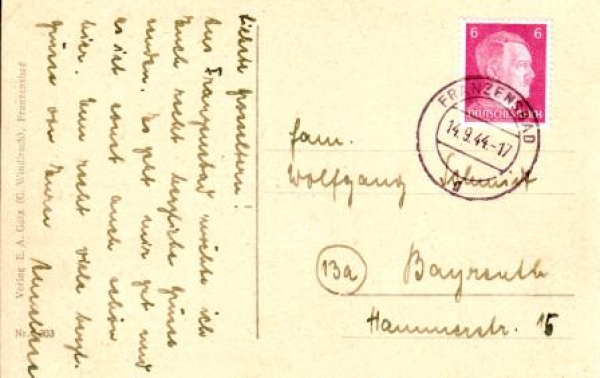 Liebste Großeltern!
Aus Franzensbad möchte ich
Euch recht herzliche Grüsse
senden. Es geht mir gut und
es ist sonst auch schön
hier. Nun recht viele herzl.
Grüsse von Eurem
Verlag E. A. Götz (G. Windisch), Franzensbad
Nr. 303
6 6
DEUTSCHES REICH
FRANZENSBAD
14.9.44.-17
g
Fam.
Wolfgang Schmidt
13a Bayreuth
Hammerstr. 15